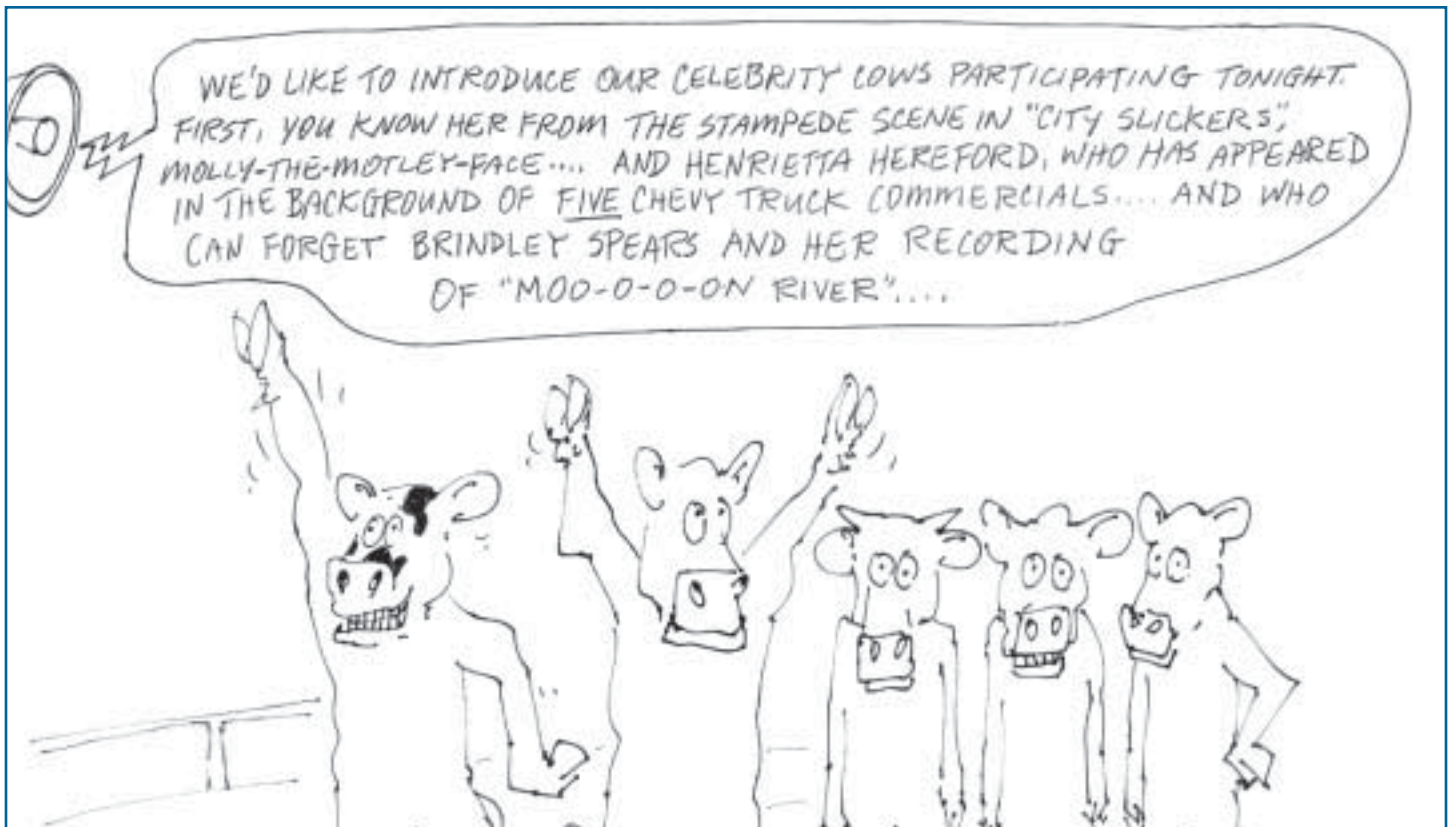 WE'D LIKE TO INTRODUCE OUR CELEBRITY COWS PARTICIPATING TONIGHT.
FIRST, YOU KNOW HER FROM THE STAMPEDE SCENE IN "CITY SLICKERS",
MOLLY-THE-MOTLEY-FACE.... AND HENRIETTA HEREFORD, WHO HAS APPEARED
IN THE BACKGROUND OF FIVE CHEVY TRUCK COMMERCIALS.... AND WHO
CAN FORGET BRINDLEY SPEARS AND HER RECORDING
OF "MOO-O-O-ON RIVER"....